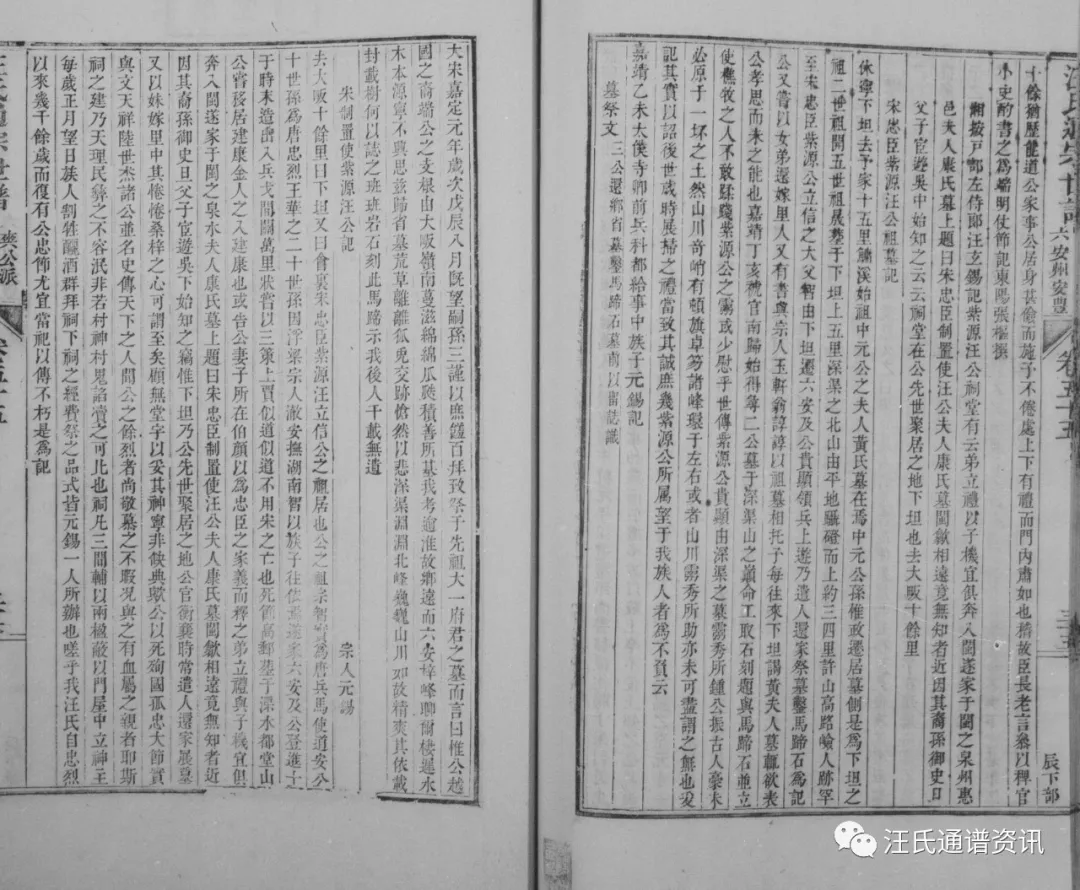 汪氏通宗世譜 六安州安豐 卷五十五 三五 辰下部
十餘猶歷能道公家事公居身甚儉而施予不倦處上下有禮而門內肅如也楷故臣長老言參以稗官
小史酌書之為端明仗節記東陽張樞撰
附按戶部左侍郎汪玄錫記紫源汪公祠堂有云弟立禮以子機宜俱奔入閩遂家于閩之泉州惠
邑夫人康氏墓上題曰宋忠臣制置使汪公夫人康氏墓閩歙相遠竟無知者近因其裔孫御史旦
父子宦遊吳中始知之云云祠堂在公先世聚居之地下坦也去大畈十餘里
宋忠臣紫源汪公祖墓記
休寧下坦去予家十五里鬴溪始祖中元公之夫人黃氏墓在焉中元公孫惟政遷居墓側是為下坦之
祖二世祖開五世祖展塟于下坦上五里深渠之北山由平地躡磴而上約三四里許山高路嶮人跡罕
至宋忠臣紫源公立信之大父智由下坦遷六安及公貴顯領兵上遊乃遺人還家祭墓鑿馬蹄石為記
公又嘗以女弟還嫁里人又有書與宗人玉軒翁諄諄以祖墓相托予每往來下坦謁黃夫人墓輒欲表
公孝思而未之能也嘉靖丁亥禠官南歸始得尋二公墓于深渠山之巔命工取石刻題與馬蹄石並立
使樵牧之人不敢蹂踐紫源公之靈或少慰乎世傳紫源公貴顯由深渠之墓靈秀所鍾公振古人豪未
必原于一坏之土然山川奇峭有頓旗卓笏諸峰環于左右或者山川靈秀所助亦未可盡謂之無也爰
記其實以詔後世歲時展掃之禮當致其誠庶幾紫源公所屬望于我族人者為不負云
嘉靖乙未太僕寺卿前兵科都給事中族子元錫記
墓祭文 三公還鄉省墓鑿馬蹄石墓前以當誌識
大宋嘉定元年歲次戊辰八月既望嗣孫三謹以庶饈百拜致祭于先祖大一府君之墓而言曰惟公越
國之裔端公之支根由大畈嶺南蔓滋綿綿瓜瓞積善所基我考逾淮故鄉遠而六安梓峰聊爾棲遲水
木本源寧不興思茲歸省墓荒草離離狐兎交跡愴然以悲深渠淵淵北峰巍巍山川如故精爽其依載
封載樹何以誌之班班岩石刻此馬蹄示我後人千載無遺
宋制置使紫源汪公記 宗人元錫
去大畈十餘里曰下坦又曰會裏宋忠臣紫源汪立信公之祖居也公之祖宗智實為唐兵馬使道安公
十世孫為唐忠烈王華之二十世孫因浮梁宗人澈安撫湖南智以族子往依焉遂家六安及公登進士
于時末造囏出入兵戈間關萬里狀嘗以三策上賈似道似道不用宋之亡也死節高郵塟于溧水都堂山
公嘗移居建康金人之入建康也或告公妻子所在伯顏以為忠臣之家義而釋之弟立禮與子機宜俱
奔入閩遂家于閩之泉水夫人康氏墓上題曰宋忠臣制置使汪公夫人康氏墓閩歙相遠竟無知者近
因其裔孫御史旦父子宦遊吳下始知之竊惟下坦乃公先世聚居之地公官衡襄時常遣人還家展墓
又以妹嫁里中其惓惓桑梓之心可謂至矣顧無堂宇以妥其神寧非缺典歟公以死殉國孤忠大節實
與文天祥陸世杰諸公並名史傳天下之人聞公之餘烈者尚敬慕之不暇況與之有血屬之親者耶斯
祠之建乃天理民彝之不容泯非若村神村鬼諂瀆之可比也祠凡三間輔以兩楹蔽以門屋中立神主
每歲正月望日族人割牲釃酒群拜祠下祠之經費祭之品式皆元錫一人所辦也嗟乎我汪氏自忠烈
以來幾千餘歲而復有公忠節尤宜當祀以傳不朽是為記
汪氏通宗世譜 爽公派 卷五十五
汪氏通谱资讯